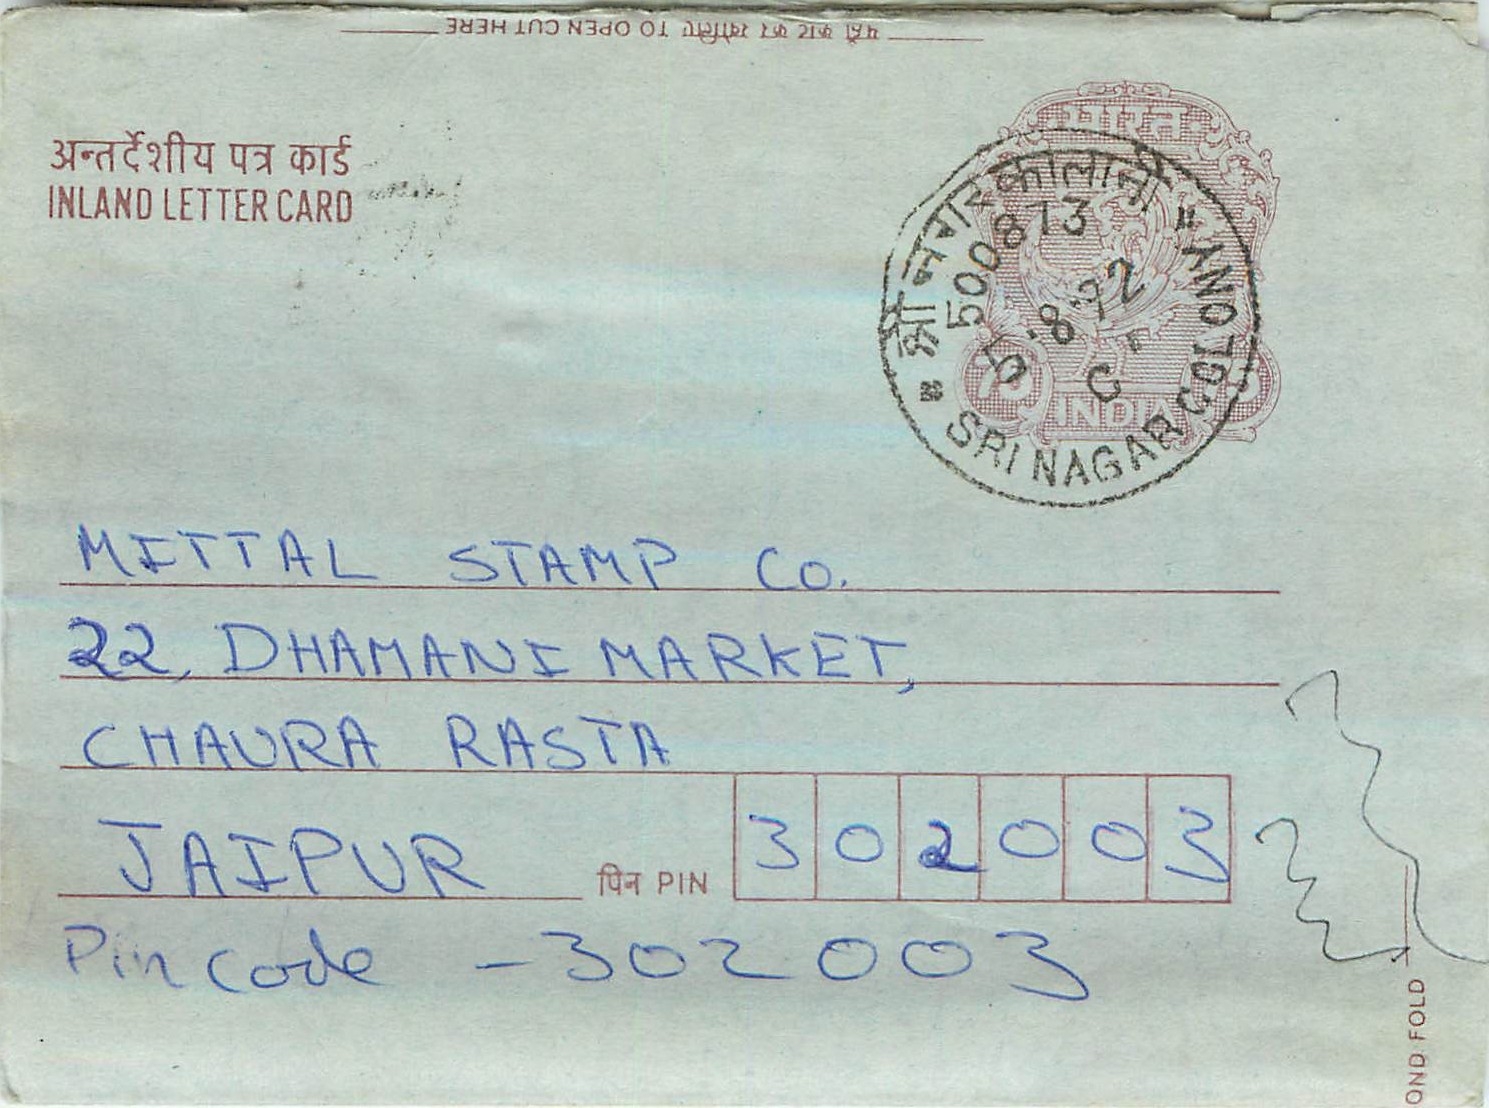 यहाँ काट कर खोलिए TO OPEN CUT HERE
अन्तर्देशीय पत्र कार्ड
INLAND LETTER CARD
भारत
INDIA
श्री नगर कालोनी
500873
5.8.72
C
SRI NAGAR COLONY
MITTAL STAMP Co.
22, DHAMANI MARKET,
CHAURA RASTA
JAIPUR
पिन PIN 302003
Pin code - 302003
OND FOLD